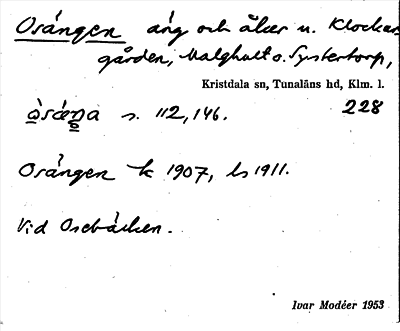 Osången äng och åker u. Klockare
gården, Malghult o. Systertorp,
Kristdala sn, Tunaläns hd, Klm. l.
228
s. 112, 146.
Osången k 1907, ls 1911.
Vid Osebäcken.
Ivar Modéer 1953